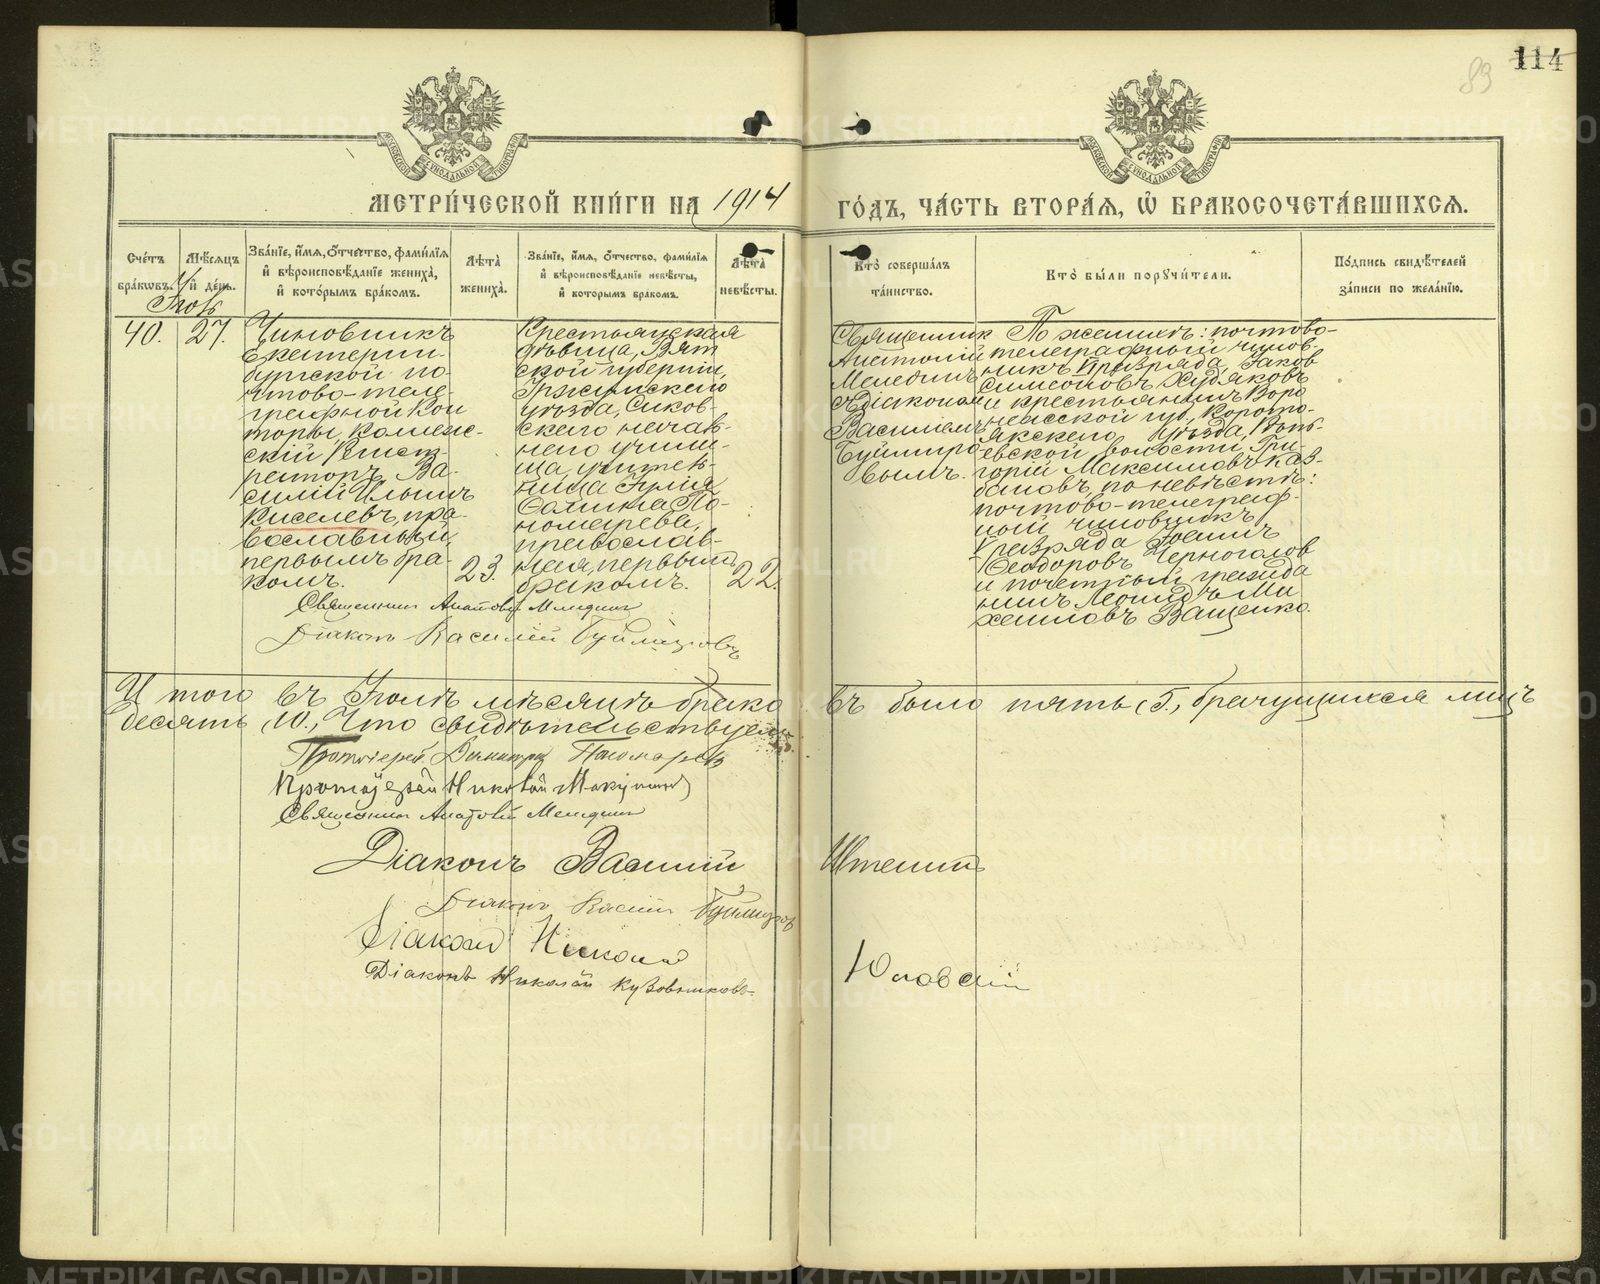 114
89
МЕТРИ́ЧЕСКОЙ КНИ́ГИ НА 1914 ГО́ДЪ, ЧА́СТЬ ВТОРА́Я, Ѽ БРАКОСОЧЕТА́ВШИХСЯ.
Сче́тъ бра́кѡвъ.
Мѣ́сяцъ и҆ де́нь.
Зва́нїе, и҆́мя, ѻ҆́тчество, фами́лїя и҆ вѣроисповѣ́данїе жениха̀, и҆ кото́рымъ бра́комъ.
Лѣ́та жениха̀.
Зва́нїе, и҆́мя, ѻ҆́тчество, фами́лїя и҆ вѣроисповѣ́данїе невѣ́сты, и҆ которымъ бракомъ.
Лѣ́та невѣ́сты.
Кто̀ соверша́лъ та́инство.
Кто̀ бы́ли порꙋчи́тели.
По́дпись свидѣ́телей за́писи по жела́нїю.
Іюль
40.
27.
Чиновникъ
Екатерин-
бургской по-
чтово-теле-
графной кон
торы, коллеж-
скій Регист-
раторъ Ва-
силій Ильинъ
Киселевъ, пра-
вославный,
первымъ бра-
комъ.
23.
Крестьянская
дѣвица, Вят
ской губерніи,
Уржумскаго
уѣзда, Сиков-
скаго началь-
наго учили-
ща, учитель-
ница Юлія
Ѳомина По-
номарева,
православ-
ная, первымъ
бракомъ.
22.
Священникъ
Анатолій
Мелединъ
съ діакономъ
Василіемъ
Буймиро
вымъ.
По женихѣ: почтово-
телеграфный чинов-
никъ VI разряда, Іаковъ
Симеоновъ Худяковъ
и крестьянинъ Воро
нежской губ., Корото-
якскаго уѣзда,
волости Гри-
горій Максимовъ Каз-
бановъ, по невѣстѣ:
почтово-телеграф-
ный чиновникъ
V разряда Іоаннъ
Ѳеодоровъ Черноголов
и почетный гражда
нинъ Леонидъ Ми
хаиловъ Ващенко.
Священникъ Анатолій Меледин
Діаконъ Василій Буймировъ
И того въ Іюлѣ мѣсяцѣ брако
въ было пять (5), брачущихся лицъ
десять (10), Что свидѣтельствуемъ
Протоіерей Димитрій Пономаревъ
Протоіерей Николай
Священникъ Анатолій Меледин
Діаконъ Василій
Діаконъ Василій Буймиров
Діаконъ Николай
Юловскій
Діаконъ Николай Кузовниковъ.
METRIKI.GASO-URAL.RU